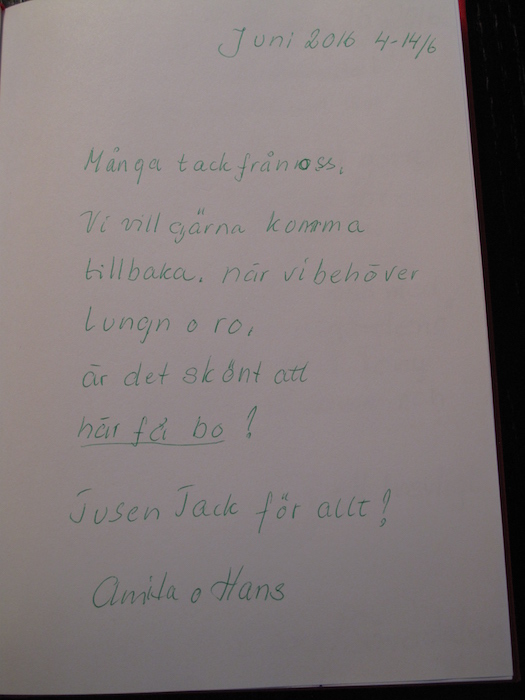 Juni 2016 4-14/6
Många tack från oss.
Vi vill gärna komma
tillbaka. när vi behöver
Lungn o ro,
är det skönt att
här få bo!
Tusen Tack för allt!
o Hans